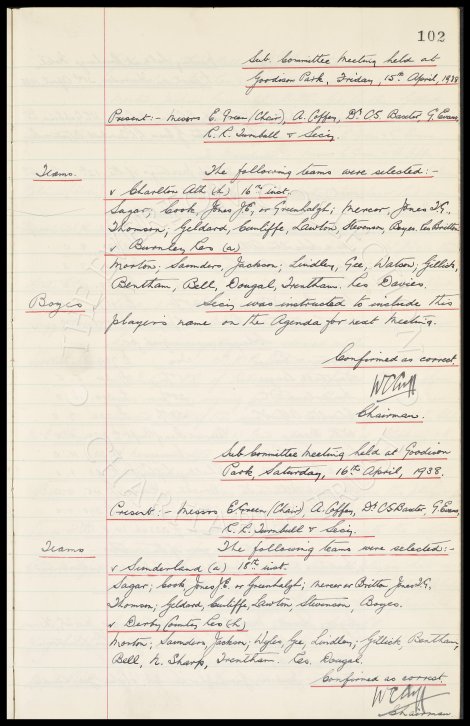 102
Sub Committee Meeting held at
Goodison Park, Friday, 15th April, 1938
Present:- Messrs E. Green (Chair), A. Coffey, Dr C.S. Baxter, G. Evans,
R. R. Turnbull & Secy.
Teams. The following teams were selected:-
v Charlton Ath (h) 16th inst.
Sagar; Cook, Jones J.E. or Greenhalgh; Mercer, Jones T.G.,
Thomson; Geldard, Cunliffe, Lawton, Stevenson, Boyes. Res Britton
v Burnley Res (a)
Morton; Saunders, Jackson; Lindley, Gee, Watson; Gillick,
Bentham, Bell, Dougal, Trentham. Res Davies.
Boyes Secy was instructed to include this
player's name on the Agenda for next meeting.
Confirmed as correct
W C Cuff
Chairman.
Sub Committee Meeting held at Goodison
Park, Saturday, 16th April, 1938.
Present:- Messrs E. Green (Chair), A. Coffey, Dr C.S. Baxter, G. Evans,
R. R. Turnbull & Secy.
Teams The following teams were selected:-
v Sunderland (a) 18th inst.
Sagar; Cook, Jones J.E. or Greenhalgh; Mercer or Britton Jones T.G.,
Thomson; Geldard, Cunliffe, Lawton, Stevenson, Boyes.
v Derby County Res (h)
Morton; Saunders, Jackson; Wyles, Gee, Lindley; Gillick, Bentham,
Bell, N. Sharp, Trentham. Res. Dougal.
Confirmed as correct
W C Cuff
Chairman